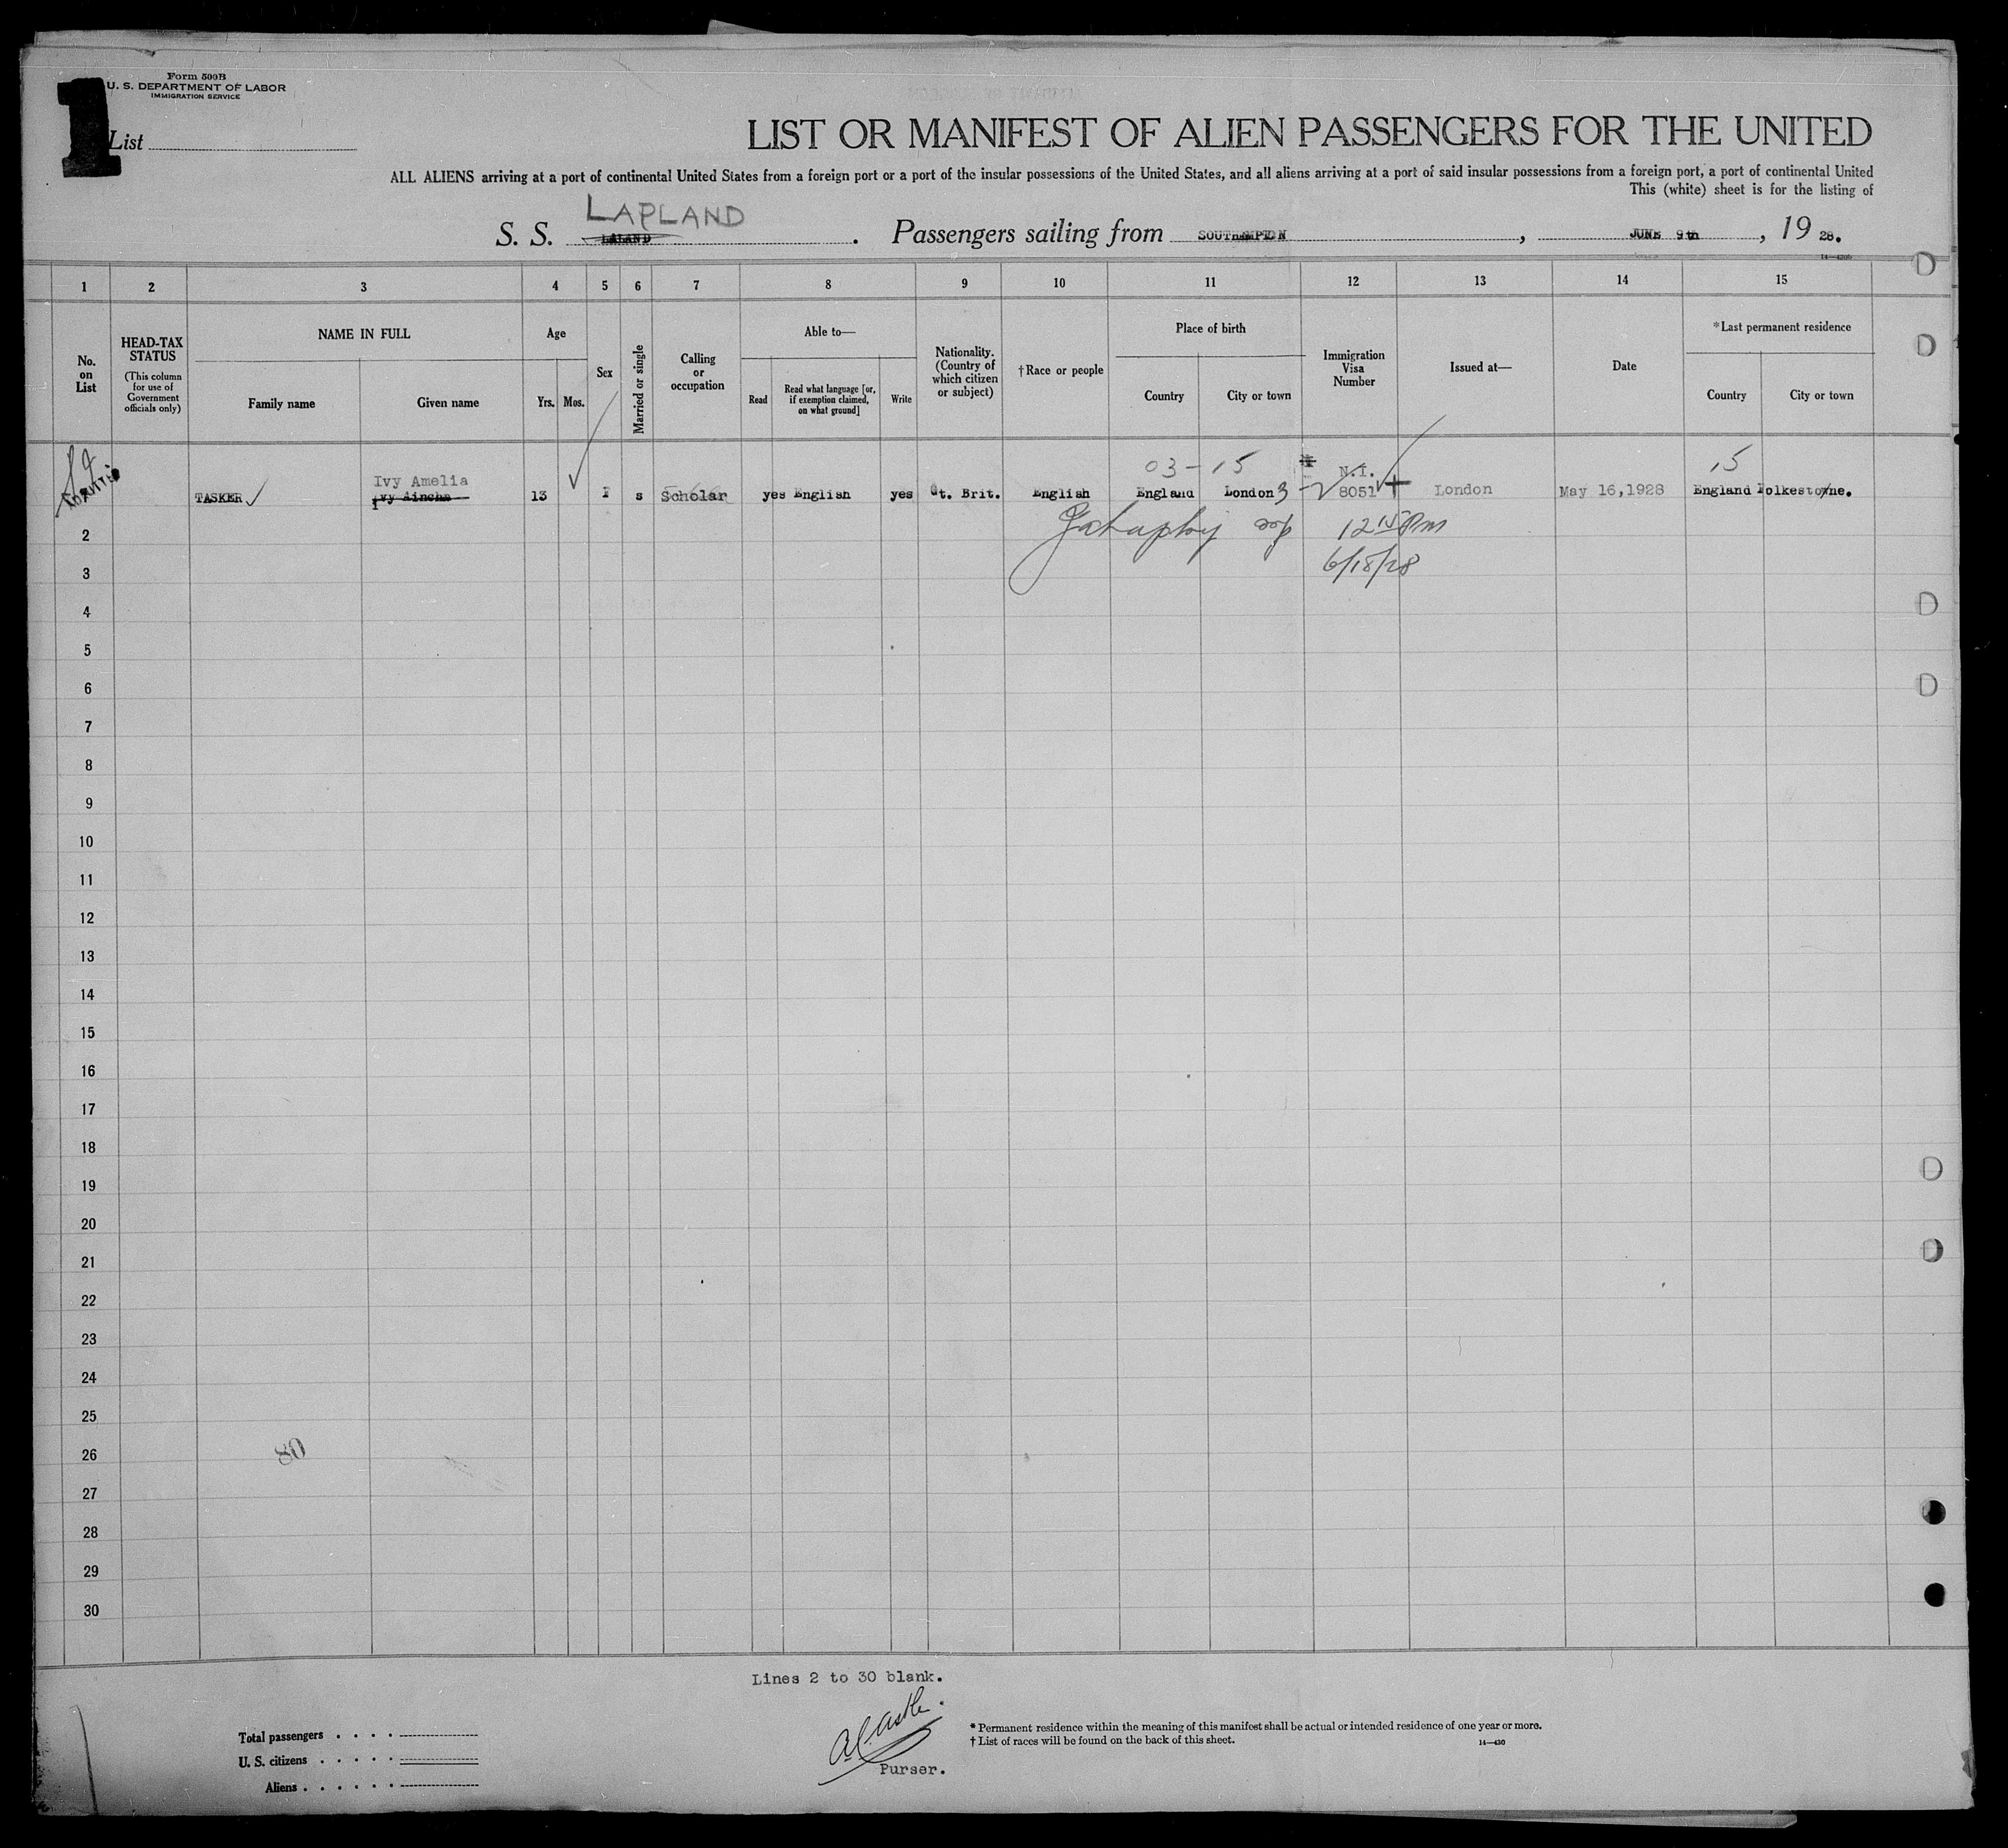 1
Form 500B
U. S. DEPARTMENT OF LABOR
IMMIGRATION SERVICE
List
LIST OR MANIFEST OF ALIEN PASSENGERS FOR THE UNITED
ALL ALIENS arriving at a port of continental United States from a foreign port or a port of the insular possessions of the United States, and all aliens arriving at a port of said insular possessions from a foreign port, a port of continental United
This (white) sheet is for the listing of
LAPLAND
S. S. LALAND . Passengers sailing from SOUTHAMPTON , JUNE 9th , 19 28.
1 2 3 4 5 6 7 8 9 10 11 12 13 14 15
No. on List
HEAD-TAX STATUS
(This column for use of Government officials only)
NAME IN FULL
Family name
Given name
Age
Yrs.
Mos.
Sex
Married or single
Calling or occupation
Able to—
Read
Read what language [or, if exemption claimed, on what ground]
Write
Nationality. (Country of which citizen or subject)
†Race or people
Place of birth
Country
City or town
Immigration Visa Number
Issued at—
Date
*Last permanent residence
Country
City or town
03-15
15
ADMITTED
Ivy Amelia
N.I.
TASKER Ivy 13 F s Scholar yes English yes Gt. Brit. English England London 3 8051 London May 16,1928 England Folkestone.
12 15 PM
6/18/28
2
3
4
5
6
7
8
9
10
11
12
13
14
15
16
17
18
19
20
21
22
23
24
25
26
80
27
28
29
30
Lines 2 to 30 blank.
Purser.
Total passengers
U. S. citizens
Aliens
* Permanent residence within the meaning of this manifest shall be actual or intended residence of one year or more.
† List of races will be found on the back of this sheet.
14—430